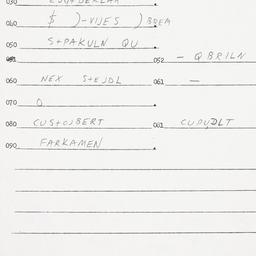 030
040 $ )-VIJES ) BREA
050 S+PAKULN QU
051 052 - QBRILN
060 NEX S+EJDL 061 —
070 O
080 CUS+OJBERT 081 CUPUDLT
090 FARKAMEN